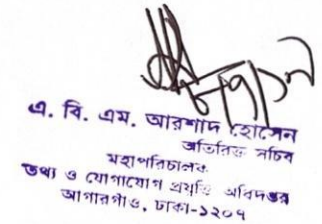 এ. বি. এম. আরশাদ হোসেন
অতিরিক্ত সচিব
মহাপরিচালক
তথ্য ও যোগাযোগ প্রযুক্তি অধিদপ্তর
আগারগাঁও, ঢাকা-১২০৭